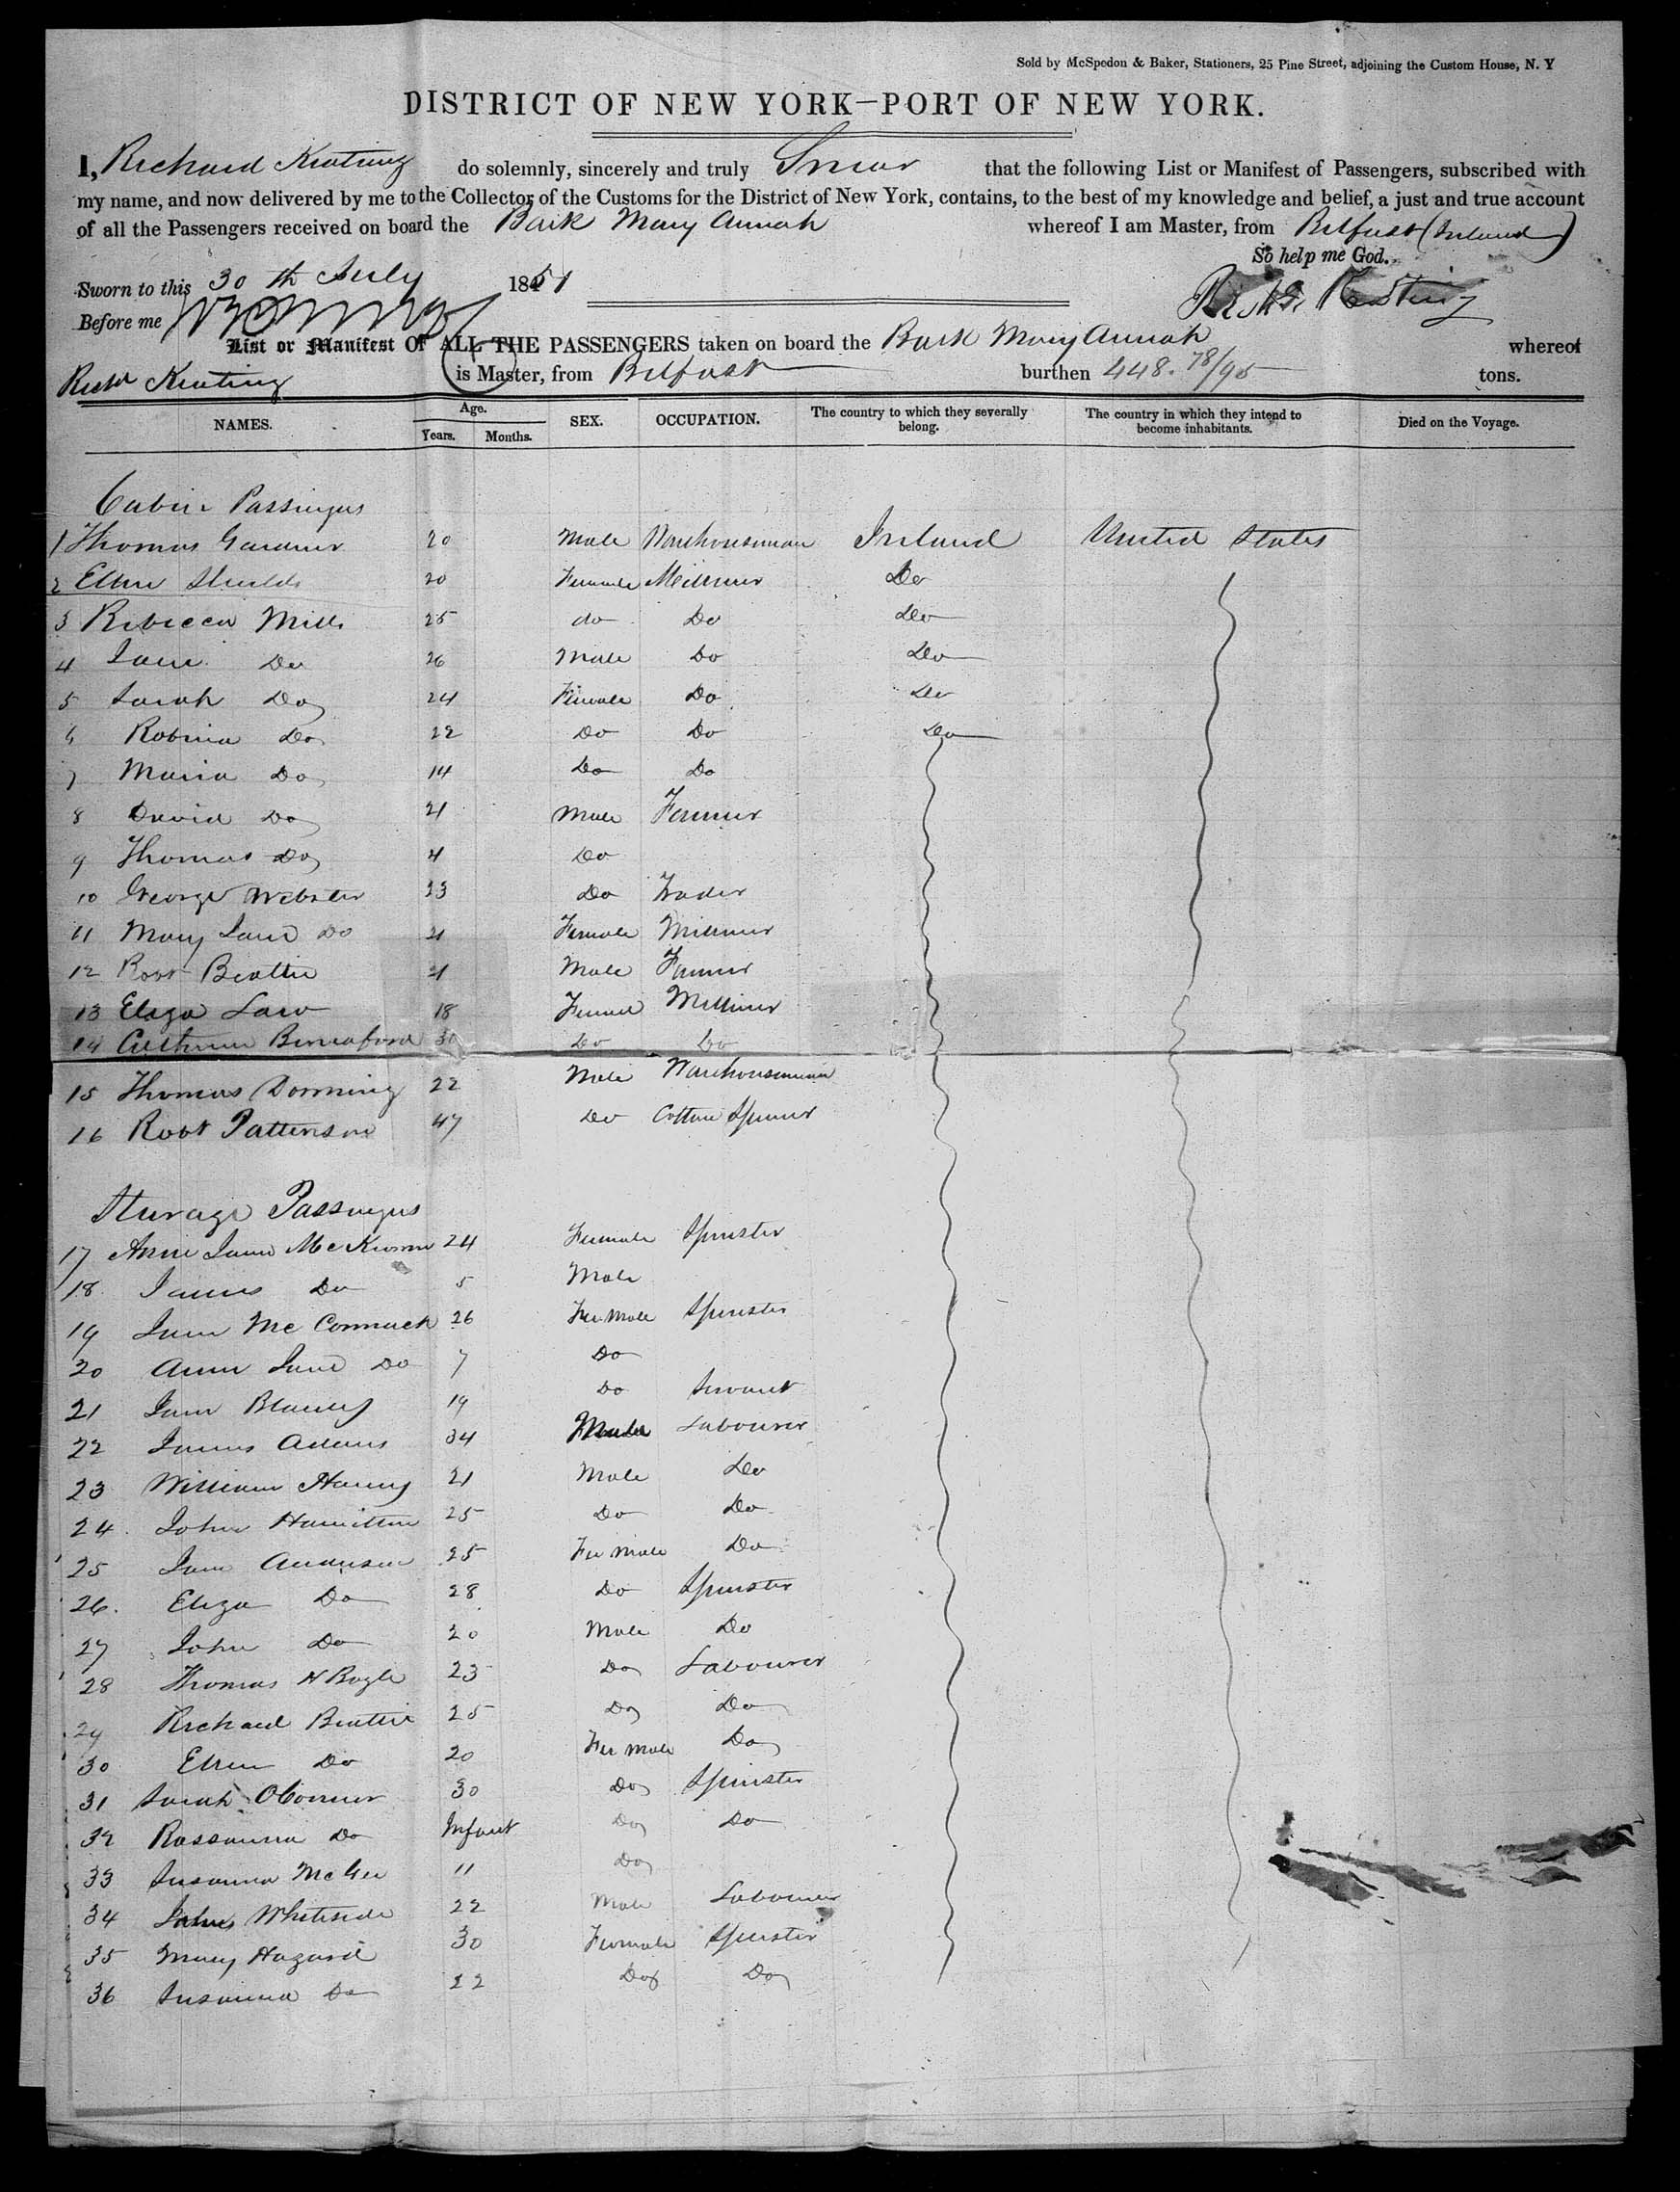 Sold by McSpedon & Baker, Stationers, 25 Pine Street, adjoining the Custom House, N. Y
DISTRICT OF NEW YORK—PORT OF NEW YORK.
I, Richard Keating do solemnly, sincerely and truly Swear that the following List or Manifest of Passengers, subscribed with
my name, and now delivered by me to the Collector of the Customs for the District of New York, contains, to the best of my knowledge and belief, a just and true account
of all the Passengers received on board the Bark Mary Annah whereof I am Master, from Belfast (Ireland)
So help me God.
Sworn to this 30 th July 1851
Richd Keating
Before me
List or Manifest OF ALL THE PASSENGERS taken on board the Bark Mary Annah whereof
Richd Keating is Master, from Belfast burthen 448. 78/95 tons.
NAMES. Age. Years. Months. SEX. OCCUPATION. The country to which they severally belong. The country in which they intend to become inhabitants. Died on the Voyage.
Cabin Passingers
1 Thomas Gardner 20 Male Warehouseman Ireland United States
2 Ellen Shields 20 Female Milliner Do
3 Rebecca Mills 25 do Do Do
4 Jane Do 26 Male Do Do
5 Sarah Do 24 Female Do Do
6 Robina Do 22 Do Do Do
7 Maria Do 14 Do Do
8 David Do 21 Male Farmer
9 Thomas Do 4 Do
10 George Webster 23 Do Trader
11 Mary Jane Do 21 Female Milliner
12 Robt Beattie 21 Male Farmer
13 Eliza Law 18 Female Milliner
14 30 Do Do
15 Thomas Dorning 22 Male Warehouseman
16 Robt Patterson 47 Do Cotton Spinner
Sturage Passingers
17 Anne Jane 24 Female Spinster
18 James Do 5 Male
19 Jane McCormack 26 Female Spinster
20 Anne Jane Do 7 Do
21 Jane Blaney 19 Do Servant
22 James Adams 34 Male Labourer
23 William Haney 21 Male Do
24 John Hamilton 25 Do Do
25 Jane Anderson 25 Female Do
26 Eliza Do 28 Do Spinster
27 John Do 20 Male Do
28 Thomas H Bogle 23 Do Labourer
29 Richard Beattie 25 Do Do
30 Ellen Do 20 Female Do
31 Sarah OConner 30 Do Spinster
32 Rossanna Do Infant Do Do
33 Susanna McGee 11 Do
34 Whiteside 22 Male Labourer
35 Mary Hazard 30 Female Spinster
36 Susanna Do 22 Do Do